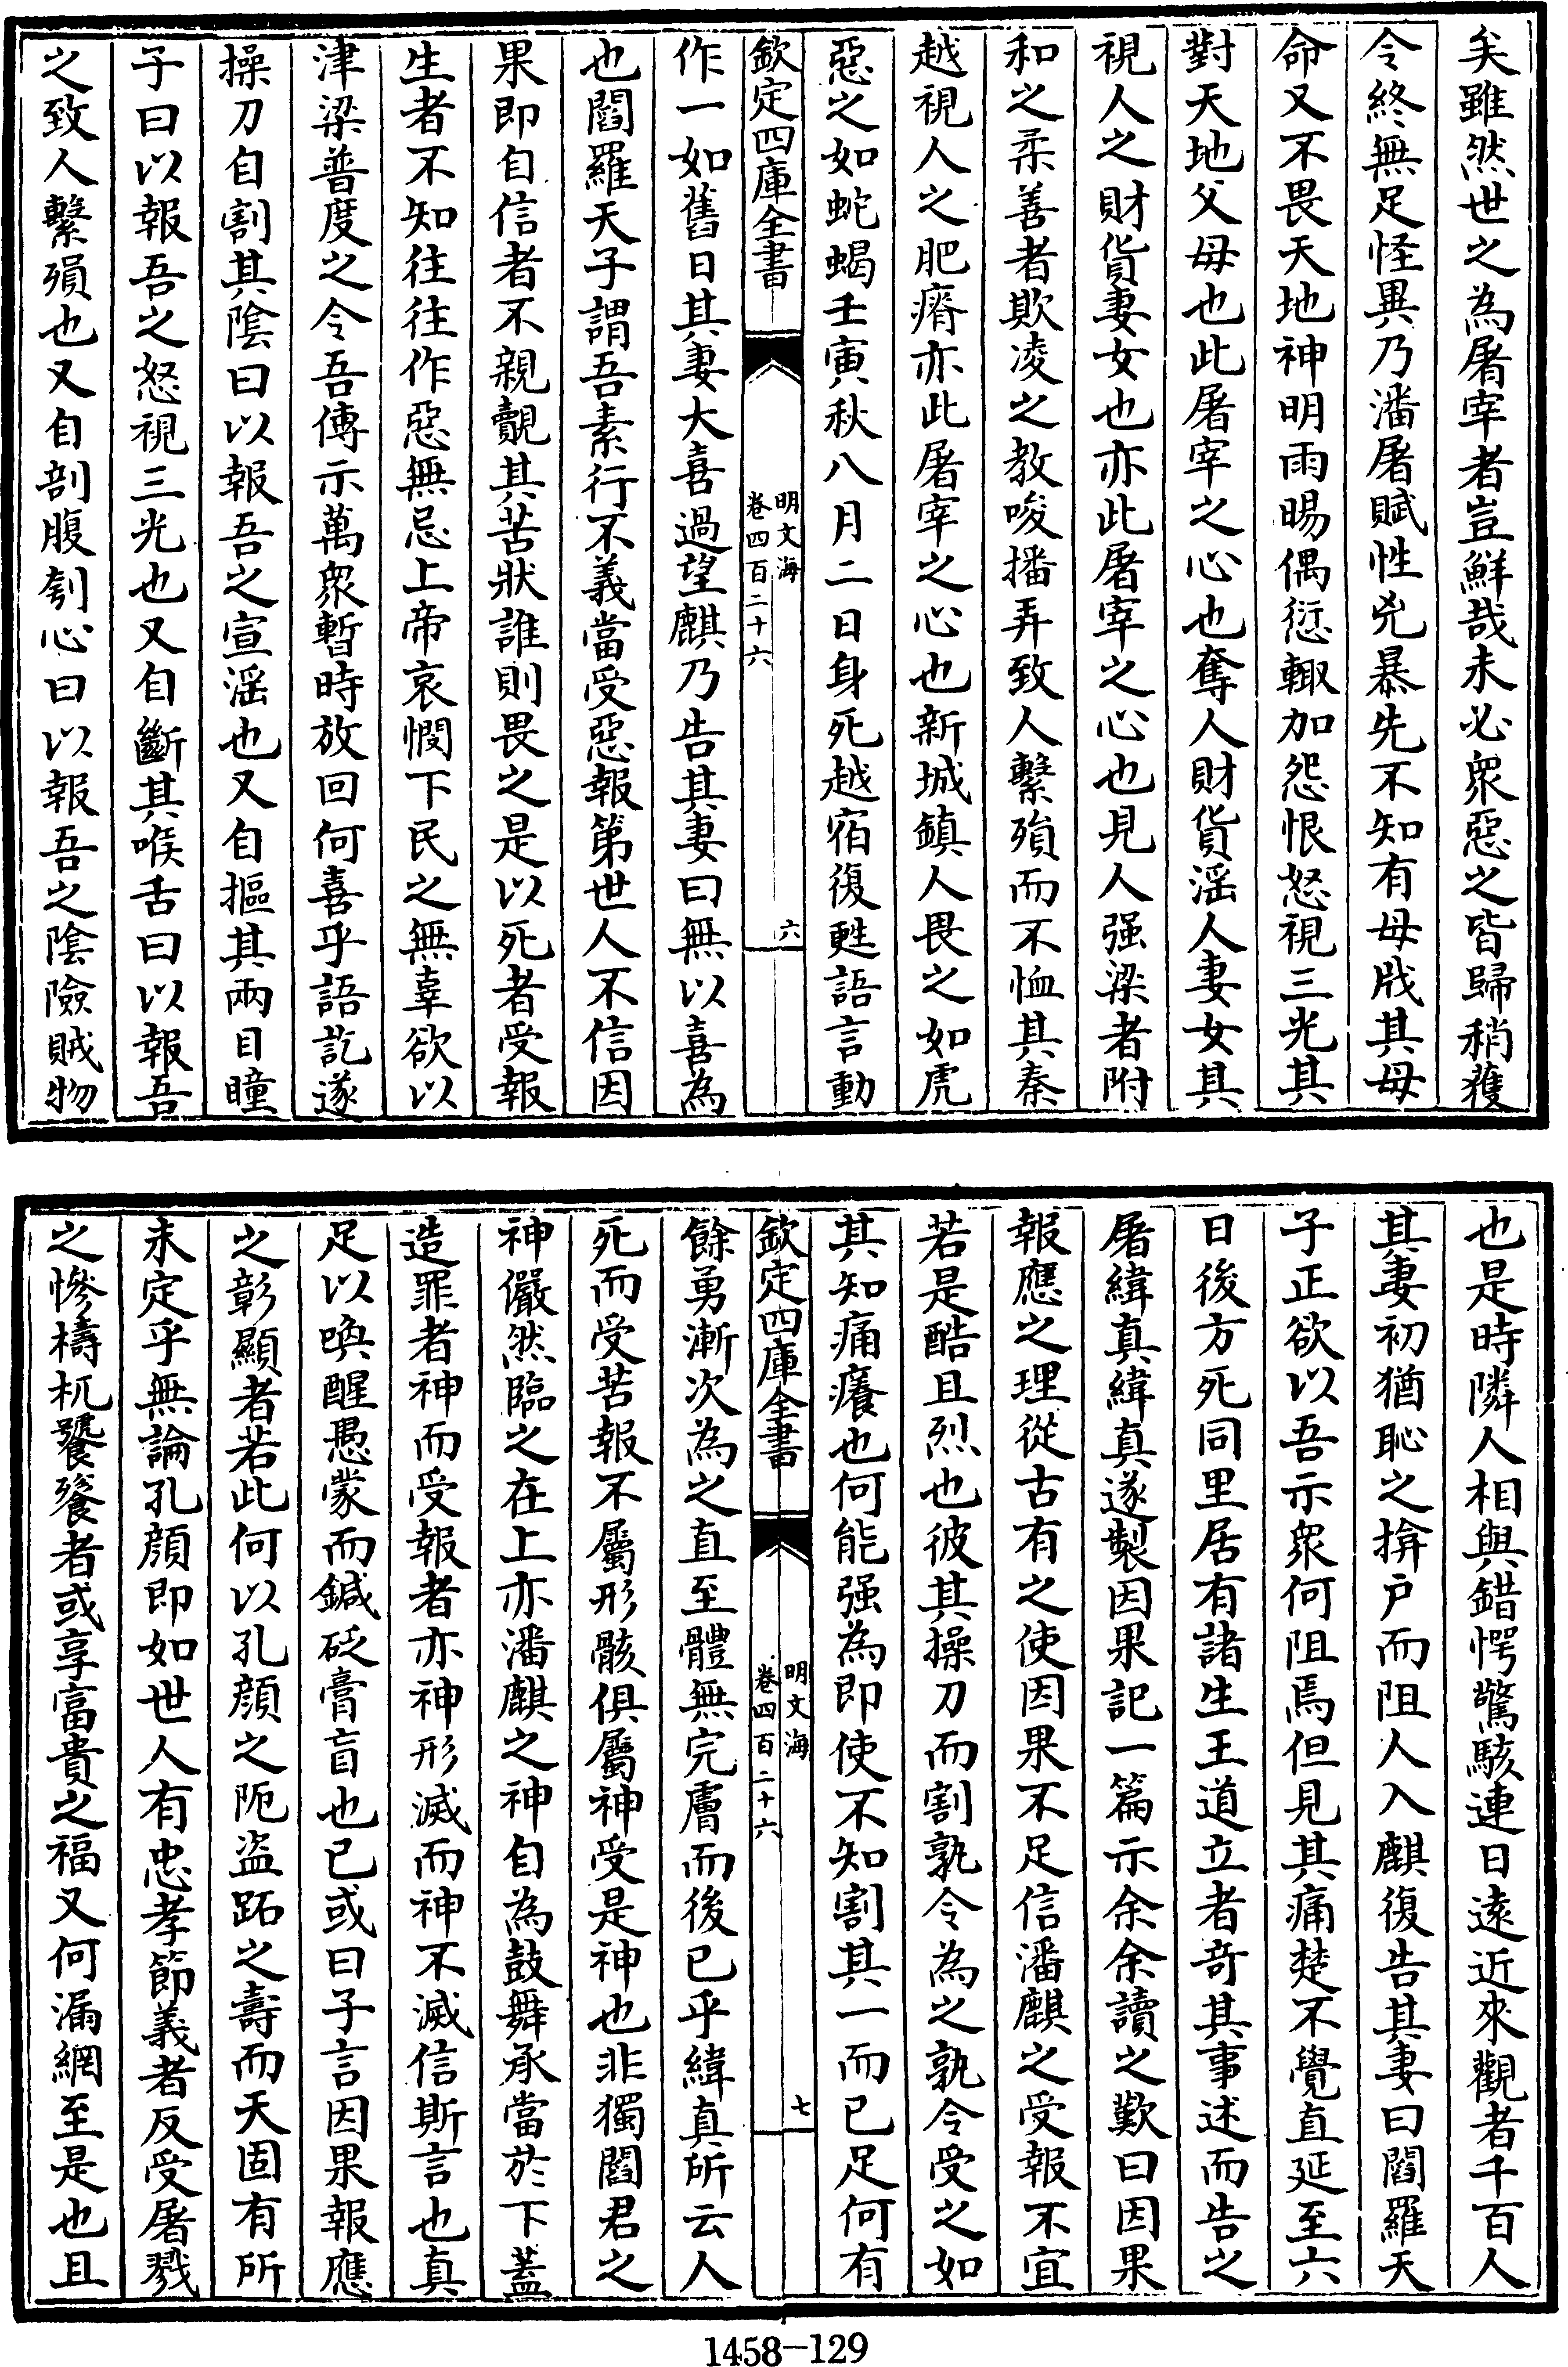 矣雖然世之為屠宰者豈鮮哉未必衆惡之皆歸稍獲
令終無足怪異乃潘屠賦性兇暴先不知有母戕其母
命又不畏天地神明雨暘偶愆輙加怨恨怒視三光其
對天地父母也此屠宰之心也奪人財貨淫人妻女其
視人之財貨妻女也亦此屠宰之心也見人强梁者附
和之柔善者欺凌之教唆播弄致人繫殞而不恤其秦
越視人之肥瘠亦此屠宰之心也新城鎮人畏之如虎
惡之如蛇蝎壬寅秋八月二日身死越宿復甦語言動
欽定四庫全書
明文海
卷四百二十六
六
作一如舊日其妻大喜過望麒乃告其妻曰無以喜為
也閻羅天子謂吾素行不義當受惡報第世人不信因
果即自信者不親覿其苦狀誰則畏之是以死者受報
生者不知往往作惡無忌上帝哀憫下民之無辜欲以
津梁普度之令吾傳示萬衆暫時放回何喜乎語訖遂
操刀自割其陰曰以報吾之宣淫也又自摳其兩目瞳
子曰以報吾之怒視三光也又自斷其喉舌曰以報吾
之致人繫殞也又自剖腹刳心曰以報吾之陰險賊物
也是時隣人相與錯愕驚駭連日遠近來觀者千百人
其妻初猶恥之揜戶而阻人入麒復告其妻曰閻羅天
子正欲以吾示衆何阻焉但見其痛楚不覺直延至六
日後方死同里居有諸生王道立者奇其事述而告之
屠緯真緯真遂製因果記一篇示余余讀之歎曰因果
報應之理從古有之使因果不足信潘麒之受報不宜
若是酷且烈也彼其操刀而割孰令為之孰令受之如
其知痛癢也何能强為即使不知割其一而已足何有
欽定四庫全書
明文海
卷四百二十六
七
餘勇漸次為之直至體無完膚而後已乎緯真所云人
死而受苦報不屬形骸俱屬神受是神也非獨閻君之
神儼然臨之在上亦潘麒之神自為鼓舞承當於下蓋
造罪者神而受報者亦神形滅而神不滅信斯言也真
足以喚醒愚蒙而鍼砭膏盲也已或曰子言因果報應
之彰顯者若此何以孔顏之阨盜跖之壽而天固有所
未定乎無論孔顏即如世人有忠孝節義者反受屠戮
之慘檮杌饕餮者或享富貴之福又何漏網至是也且
1458-129